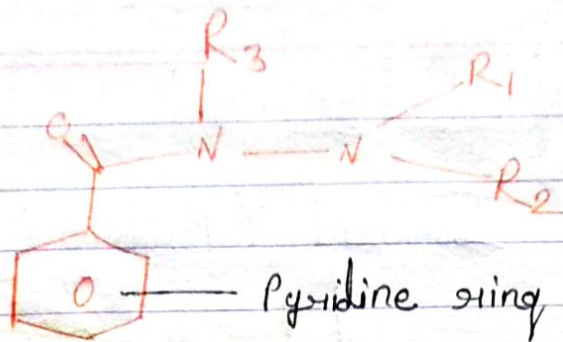 R3
R1
O
N
N
R2
O
Pyridine ring